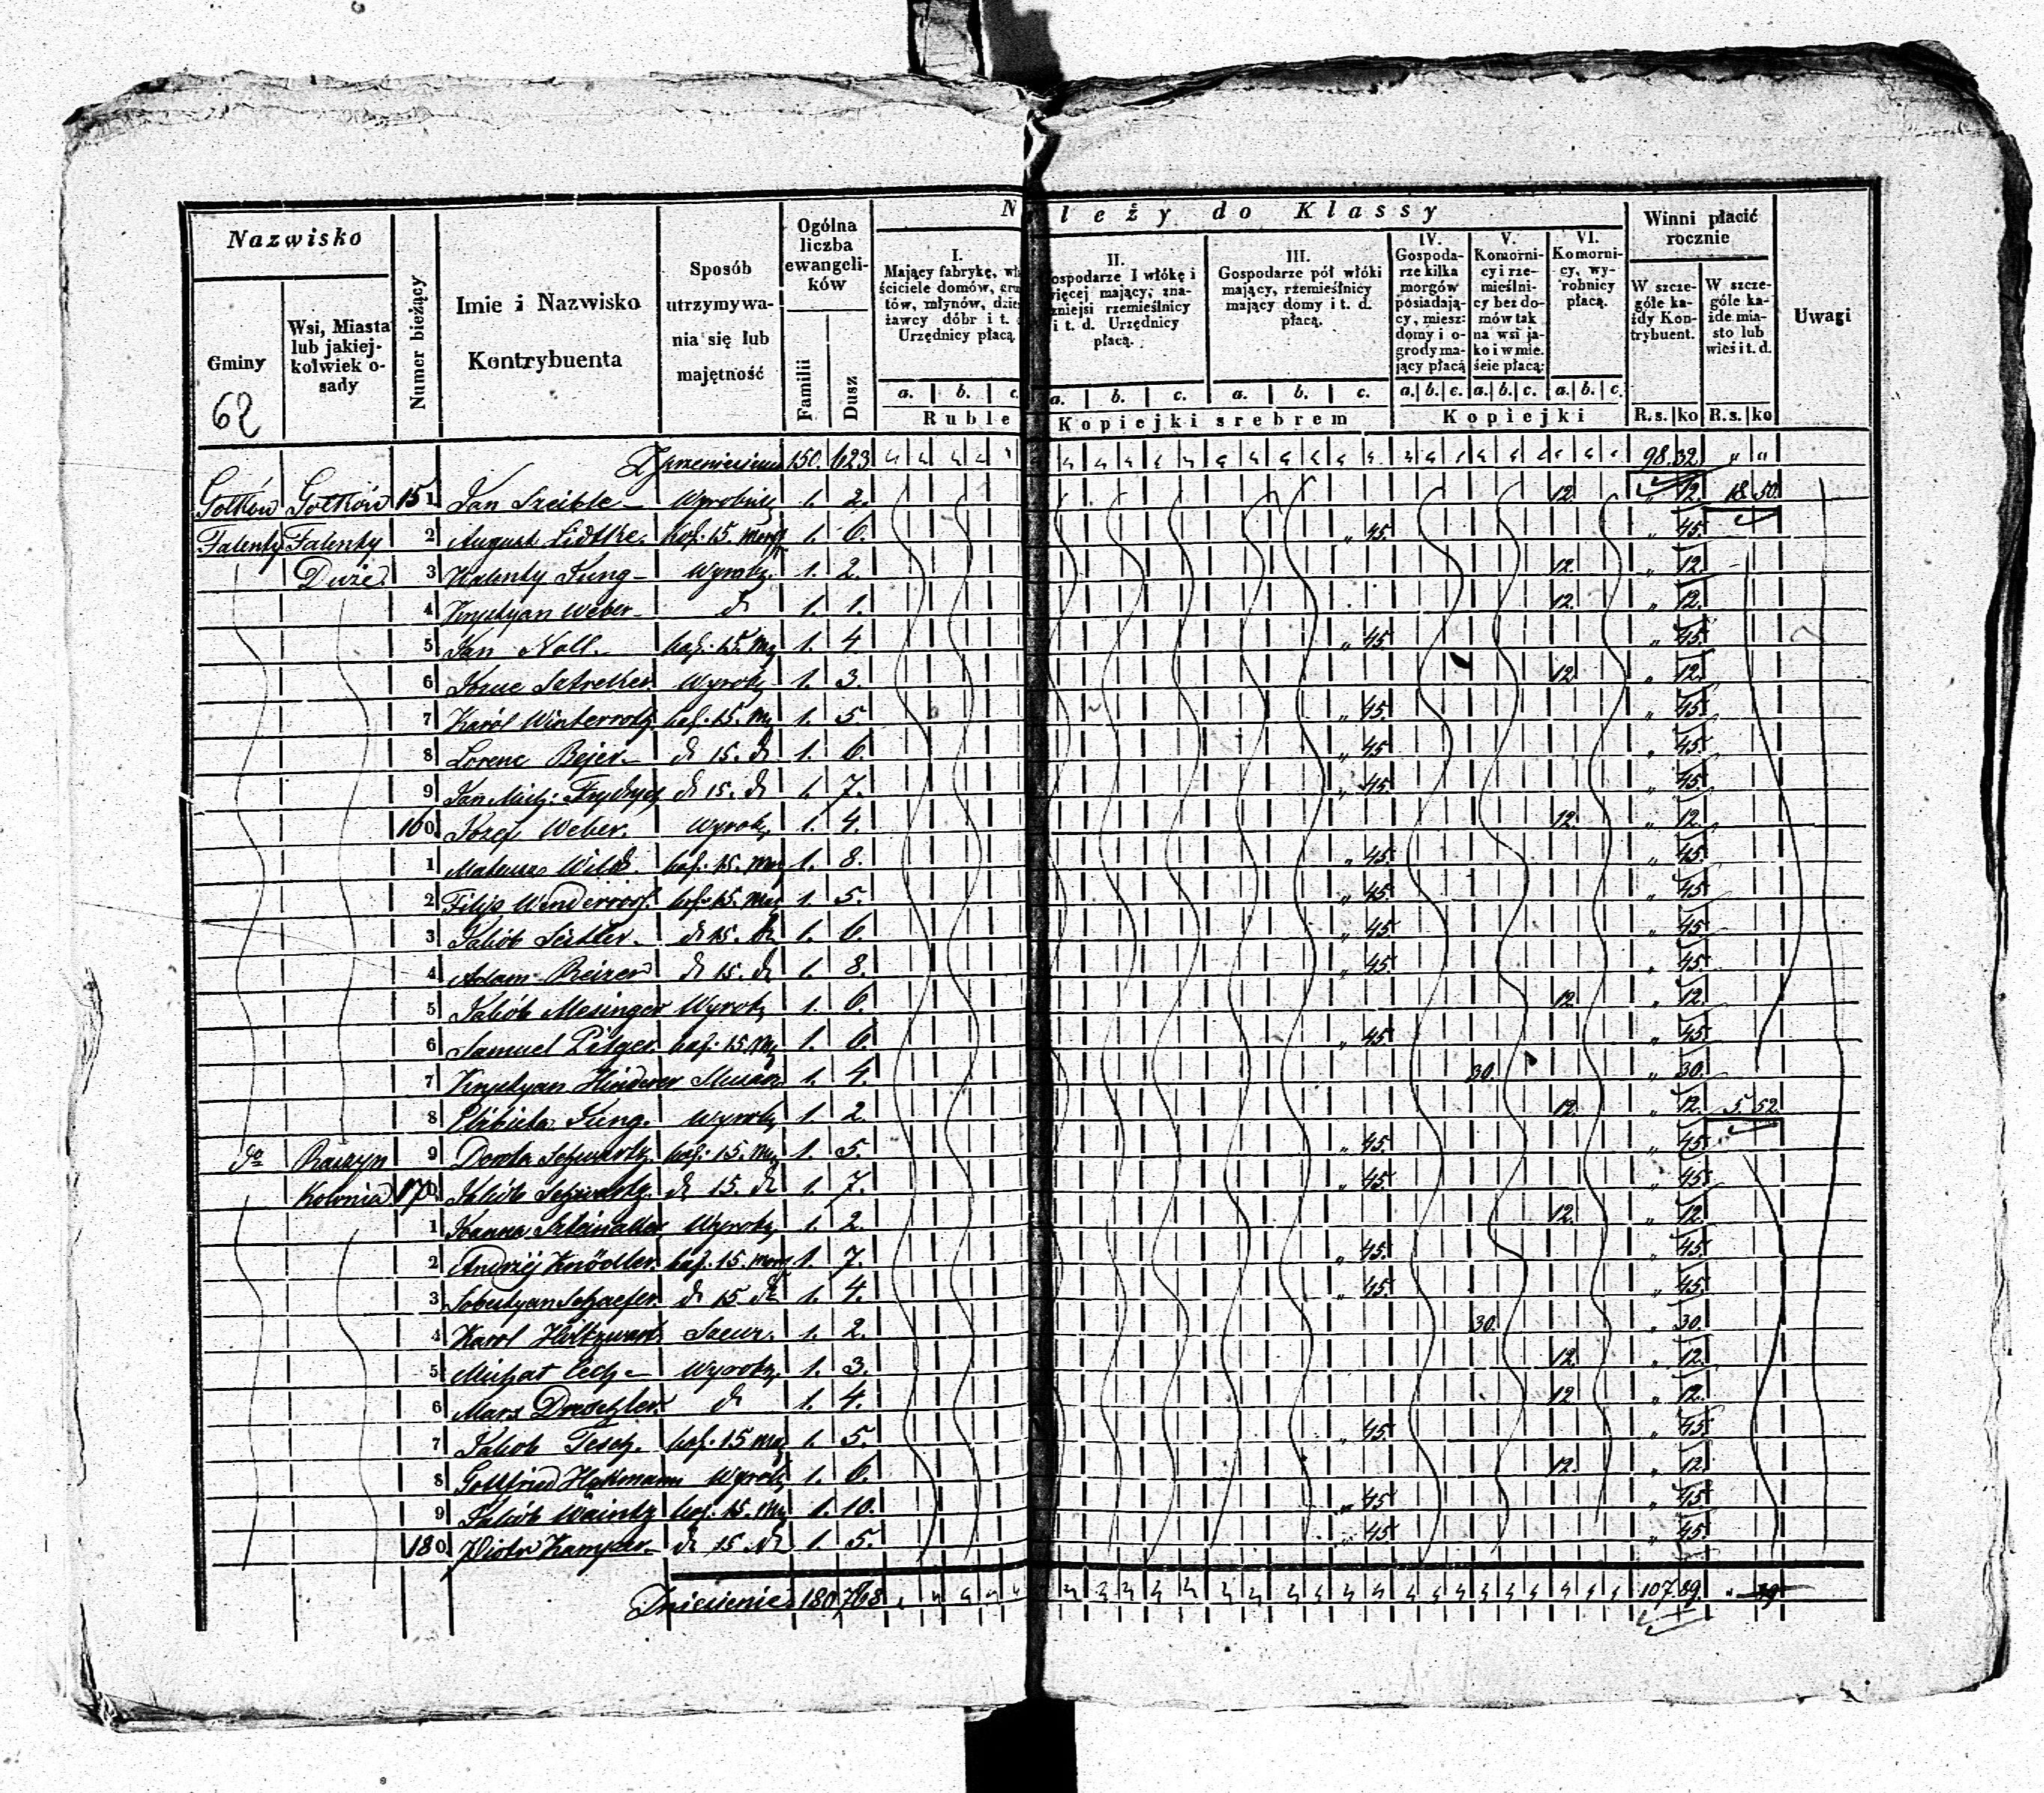 Nazwisko
Gminy
62
Wsi, Miasta lub jakiej-kolwiek o-sady
Numer bieżący
Imie i Nazwisko Kontrybuenta
Sposób utrzymywa-nia się lub majętność
Ogólna liczba ewangeli-ków
Familii
Dusz
leży do Klassy
I. Mający fabrykę, ściciele domów, tów, młynów, żawcy dóbr i t. Urzędnicy płacą
II. ospodarze I włókę i więcej mający, zna-zniejsi rzemieślnicy i t. d. Urzędnicy płacą.
III. Gospodarze pół włóki mający, rzemieślnicy mający domy i t. d. płacą.
IV. Gospoda-rze kilka morgów posiadają-cy, miesz: domy i o-grody ma-jący płacą
V. Komorni-cy i rze-mieślni-cy bez do-mów tak na wsi ja-ko i w mie-ście płacą:
VI. Komorni-cy, wy-robnicy płacą.
a. b. c. a. b. c. a. b. c. a. b. c. a. b. c. a. b. c.
Ruble Kopiejki srebrem
Kopiejki
Winni płacić rocznie
W szcze-góle ka-żdy Kon-trybuent.
W szcze-góle ka-żde mia-sto lub wieś i t. d.
R.s. ko R.s. ko
Uwagi
Z przeniesienia 150. 623 98.32 " "
Gołków Gołków 151 Jan Szeible Wyrobnik 1. 2. 12. " 12. 18 50.
Falenty Falenty 2 August Lidtke. kol. 15. morg 1. 6. " 45. " 45.
Duże. 3 Walenty Jung Wyrobn. 1. 2. 12. " 12.
4 Krystyan Weber d 1. 1. 12. " 12.
5 Jan Noll. kol. 15. Mg 1. 4. " 45. " 45.
6 Wyrob 1. 3. 12. " 12.
7 Karól Winterrot kol. 15. Mg 1. 5. " 45. " 45.
8 Lorenc Bejer d 15. d 1. 6. " 45. " 45.
9 Jan Mich: Frydrych d 15. d 1. 7. " 45. " 45.
160. Józef Weber. Wyrob 1. 4. 12. " 12.
1 Mateusz Wilk. kol. 15. Mg 1. 8. " 45. " 45.
2 Filip kol. 15. Mg 1. 5. " 45. " 45.
3 Jakób d 15. d 1. 6. " 45. " 45.
4 Adam Reizer d 15. d 1. 8. " 45. " 45.
5 Jakób Mesinger Wyrob 1. 6. 12. " 12.
6 Samuel Pilger. kol. 15. Mg 1. 6. " 45. " 45.
7 Krystyan Hinderer 1. 4. 30. " 30.
8 Elżbieta Jung. Wyrob 1. 2. 12. " 12. 5. 52.
do Raszyn 9 Dorota Schwartz kol. 15. Mg 1. 5. " 45. " 45.
Kolonia. 170. Jakób Schwartz. d 15. d 1. 7. " 45. " 45.
1 Joanna Wyrob 1. 2. 12. " 12.
2 Andrzej Knödler kol. 15. morg 1. 7. " 45. " 45.
3 Sobestyan Schaefer d 15 d 1. 4. " 45. " 45.
4 Karol Szewc. 1. 2. 30. " 30.
5 Michał Cech Wyrob 1. 3. 12. " 12.
6 Marx Dreschler d 1. 4. 12. " 12.
7 Jakób Tesch. kol. 15 Mg 1. 5. " 45. " 45.
8 Gottfried Wyrob 1. 6. 12. " 12.
9 Jakób Waintz kol. 15. Mg 1. 10. " 45. " 45.
180. Piotr Kamper d 15. d 1. 5. " 45. " 45.
Zniesienie 180 768 107.89.